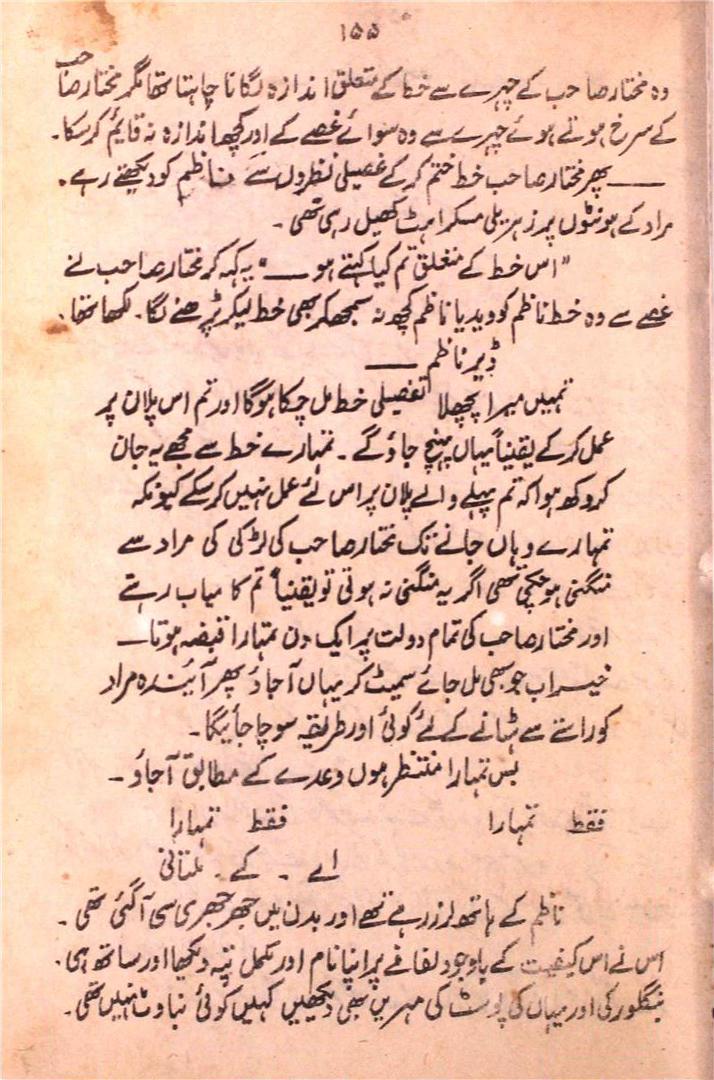 ۱۵۵
وہ مختار صاحب کے چہرے سے خط کے متعلق اندازہ لگانا چاہتا تھا مگر مختار صاحب
کے سرخ ہوتے ہوئے چہرے سے وہ سوائے غصے کے اور کچھ اندازہ نہ قایم کر سکا۔
—— پھر مختار صاحب خط ختم کر کے غصیلی نظروں سے ناظم کو دیکھتے رہے۔
مراد کے ہونٹوں پر زہریلی مسکراہٹ کھیل رہی تھی۔
"اس خط کے متعلق تم کیا کہتے ہو ——" یہ کہہ کر مختار صاحب نے
غصے سے وہ خط ناظم کو دیدیا ناظم کچھ نہ سمجھ کر بھی خط لیکر پڑھنے لگا۔ لکھا تھا۔
ڈیر ناظم ——
تمہیں میرا پچھلا تفصیلی خط مل چکا ہوگا اور تم اس پلان پر
عمل کر کے یقیناً یہاں پہنچ جاؤ گے۔ تمہارے خط سے مجھے یہ جان
کر دکھ ہوا کہ تم پہلے والے پلان پر اس لئے عمل نہیں کر سکے کیونکہ
تمہارے وہاں جانے تک مختار صاحب کی لڑکی کی مراد سے
منگنی ہو چکی تھی اگر یہ منگنی نہ ہوتی تو یقیناً تم کامیاب رہتے
اور مختار صاحب کی تمام دولت پر ایک دن تمہارا قبضہ ہوتا —
خیر اب جو بھی مل جائے سمیٹ کر یہاں آجاؤ پھر آئندہ مراد
کو راستے سے ہٹانے کے لئے کوئی اور طریقہ سوچا جائیگا۔
بس تمہارا منتظر ہوں وعدے کے مطابق آجاؤ۔
فقط تمہارا فقط تمہارا
اے ۔ کے ۔ ملتانی
ناظم کے ہاتھ لرز رہے تھے اور بدن میں جھرجھری سی آگئی تھی۔
اس نے اس کیفیت کے باوجود لفافے پر اپنا نام اور مکمل پتہ دیکھا اور ساتھ ہی۔
بنگلور کی اور یہاں کی پوسٹ کی مہریں بھی دیکھیں کہیں کوئی بناوٹ نہیں تھی۔